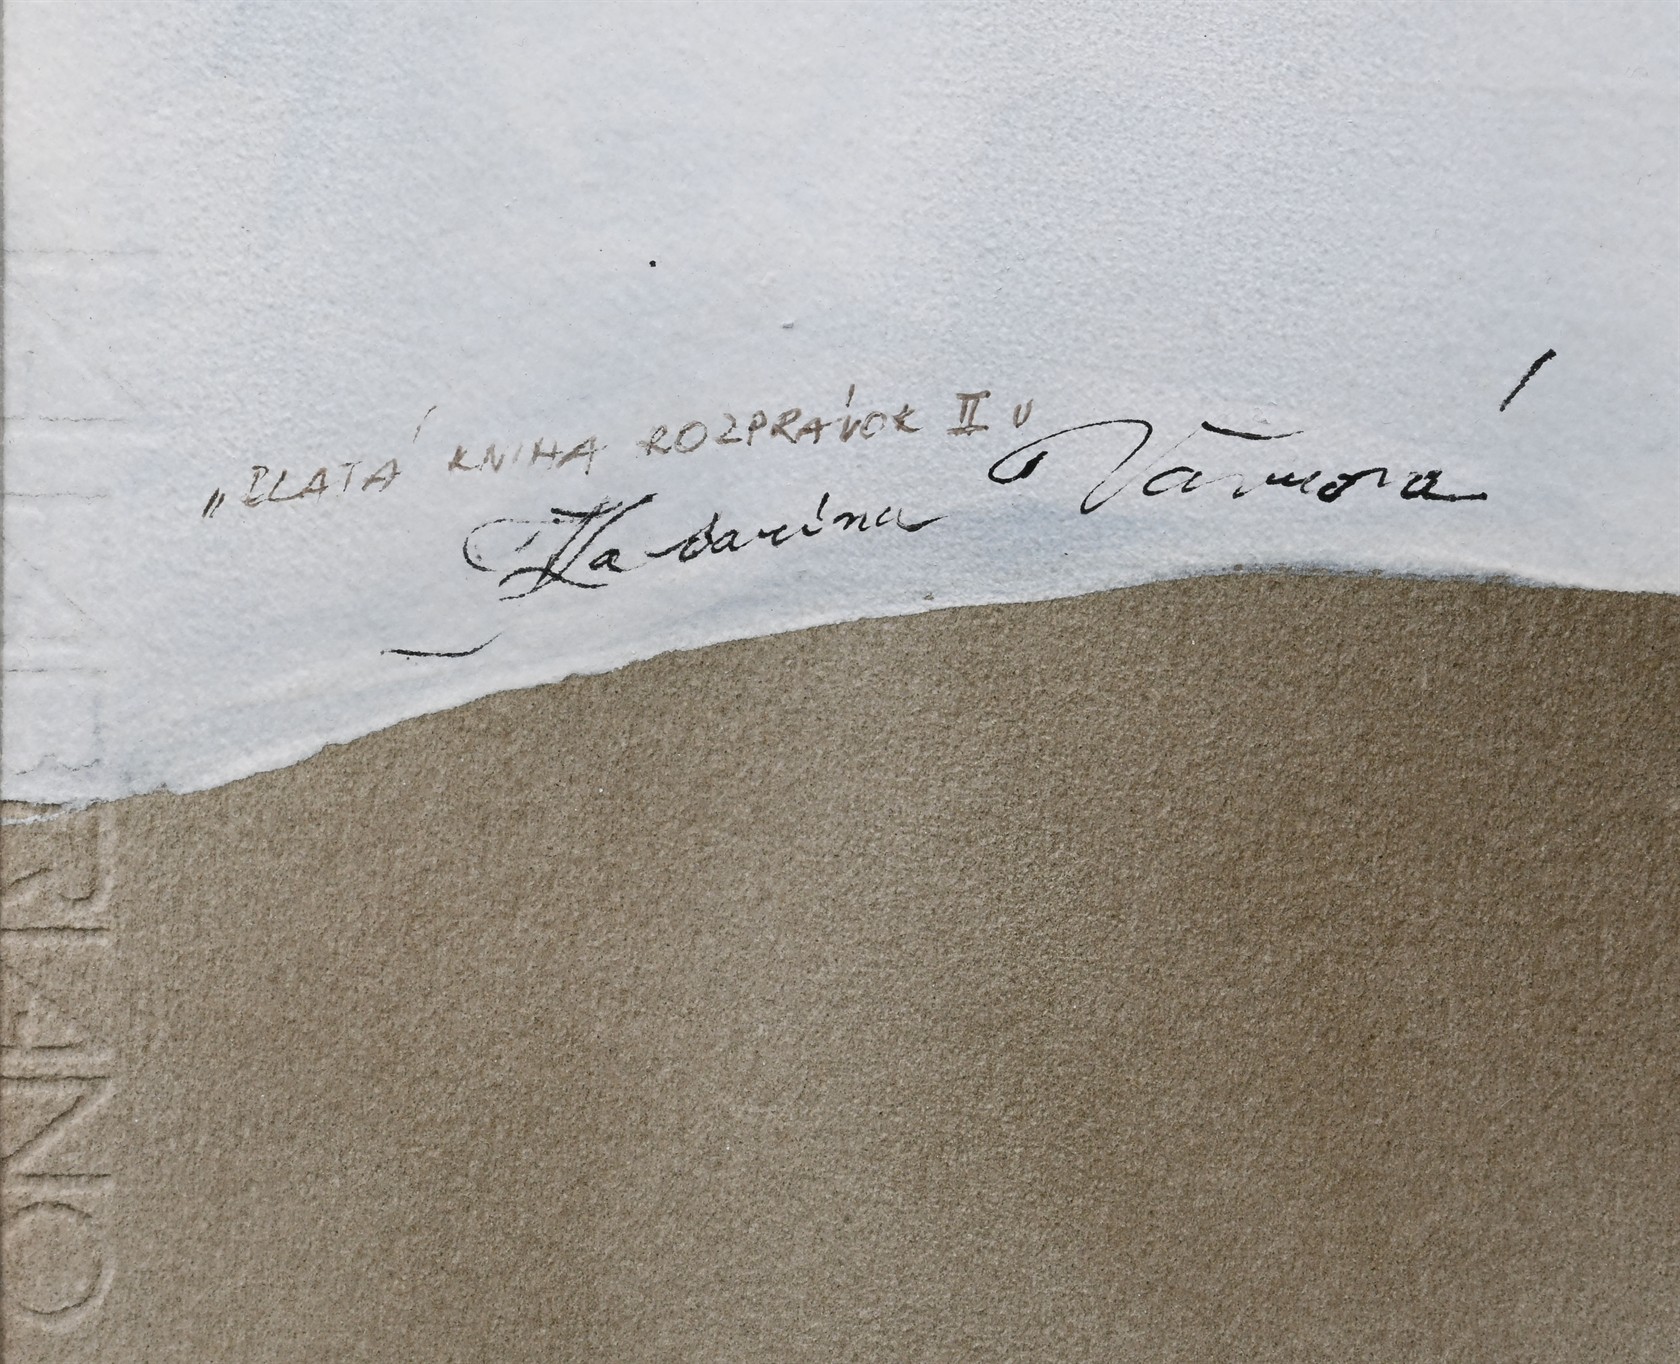 „ZLATÁ KNIHA ROZPRÁVOK II“
Katarína Vavrová
RIANO